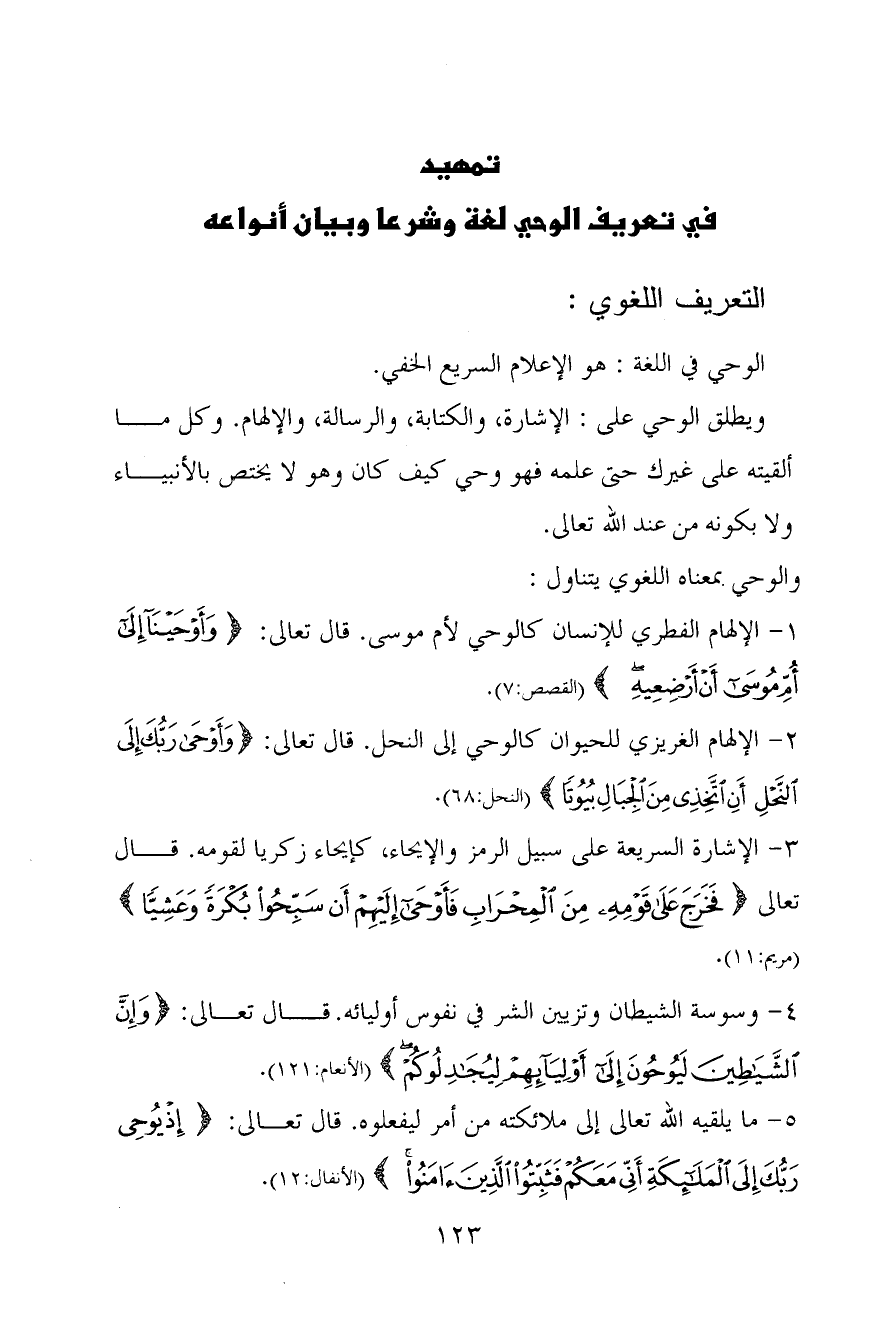 تمهيد
في تعريف الوحي لغة وشرعا وبيان أنواعه
التعريف اللغوي :
الوحي في اللغة : هو الإعلام السريع الخفي.
ويطلق الوحي على : الإشارة، والكتابة، والرسالة، والإلهام. وكل مـــا
ألقيته على غيرك حتى علمه فهو وحي كيف كان وهو لا يختص بالأنبيـــاء
ولا بكونه من عند الله تعالى.
والوحي بمعناه اللغوي يتناول :
١- الإلهام الفطري للإنسان كالوحي لأم موسى. قال تعالى: ﴿ وَأَوْحَيْنَآ إِلَىٰٓ
أُمِّ مُوسَىٰٓ أَنْ أَرْضِعِيهِ ۖ ﴾ (القصص:٧).
٢- الإلهام الغريزي للحيوان كالوحي إلى النحل. قال تعالى: ﴿ وَأَوْحَىٰ رَبُّكَ إِلَى
ٱلنَّحْلِ أَنِ ٱتَّخِذِى مِنَ ٱلْجِبَالِ بُيُوتًا ﴾ (النحل:٦٨).
٣- الإشارة السريعة على سبيل الرمز والإيحاء، كإيحاء زكريا لقومه. قـــال
تعالى ﴿ فَخَرَجَ عَلَىٰ قَوْمِهِۦ مِنَ ٱلْمِحْرَابِ فَأَوْحَىٰٓ إِلَيْهِمْ أَن سَبِّحُوا۟ بُكْرَةً وَعَشِيًّا ﴾
(مريم:١١).
٤- وسوسة الشيطان وتزيين الشر في نفوس أوليائه. قـــال تعـــالى: ﴿ وَإِنَّ
ٱلشَّيَٰطِينَ لَيُوحُونَ إِلَىٰٓ أَوْلِيَآئِهِمْ لِيُجَٰدِلُوكُمْ ۖ ﴾ (الأنعام:١٢١).
٥- ما يلقيه الله تعالى إلى ملائكته من أمر ليفعلوه. قال تعـــالى: ﴿ إِذْ يُوحِى
رَبُّكَ إِلَى ٱلْمَلَٰٓئِكَةِ أَنِّى مَعَكُمْ فَثَبِّتُوا۟ ٱلَّذِينَ ءَامَنُوا۟ ۚ ﴾ (الأنفال:١٢).
١٢٣